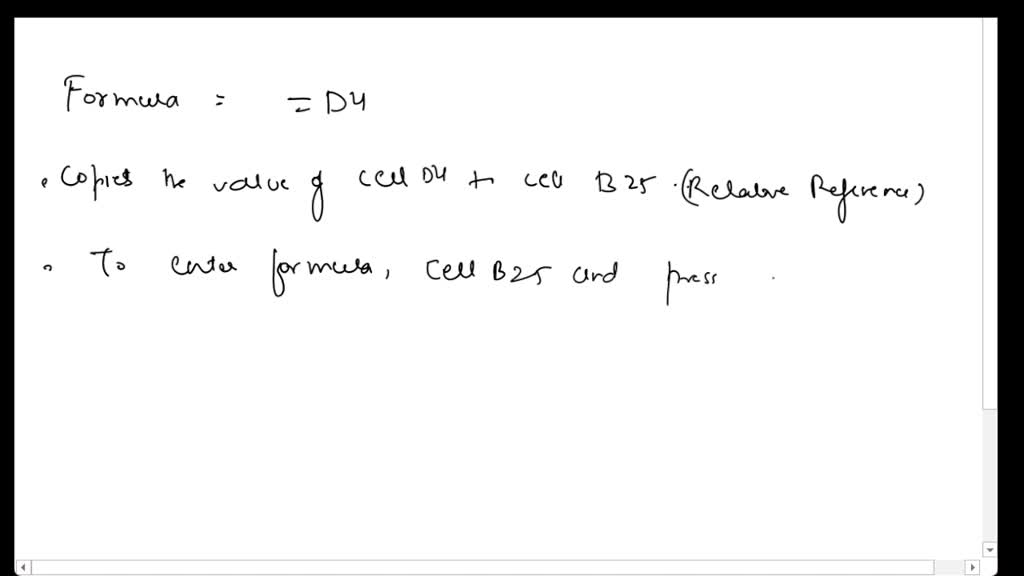 Formula = = D4
• Copies the value of cell D4 to cell B25. (Relative Reference)
• To enter formula, cell B25 and press